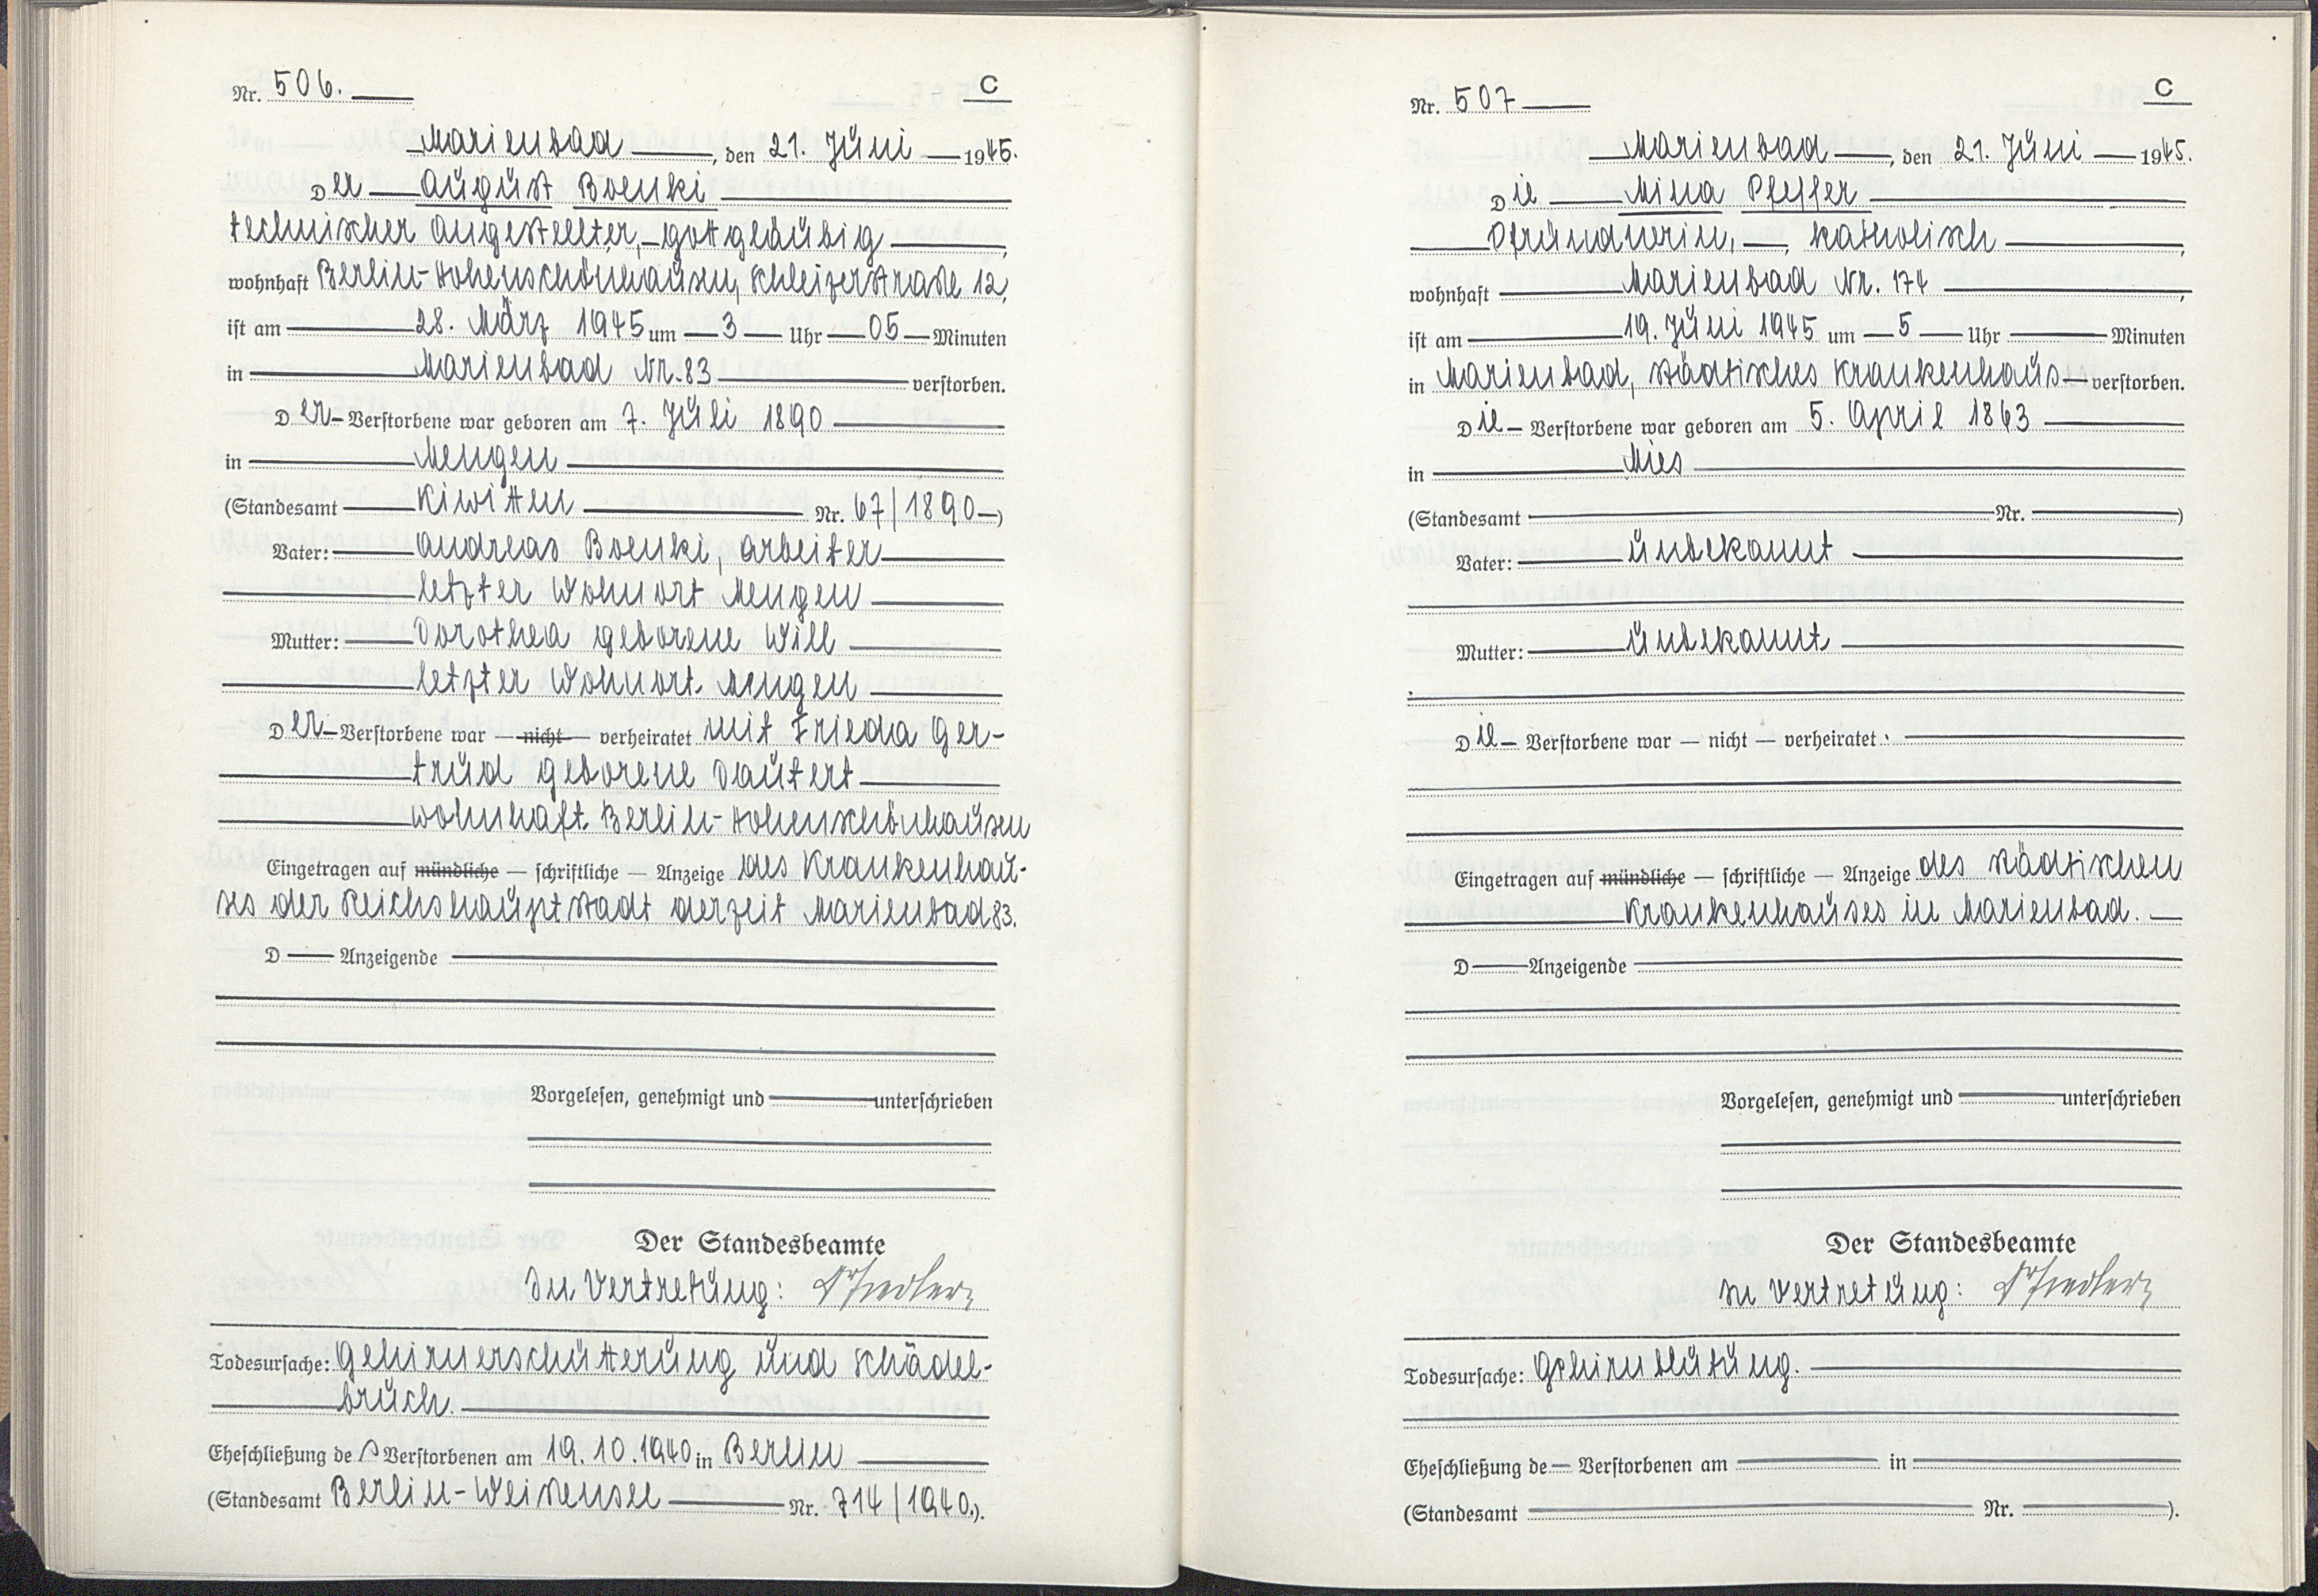 Nr. 506.
C
Marienbad, den 21. Juni 1945.
Der August Boenki
technischer Angestellter, gottgläubig,
wohnhaft Berlin-Hohenschönhausen, Schleizerstraße 12,
ist am 28. März 1945 um 3 Uhr 05 Minuten
in Marienbad Nr. 83 verstorben.
Der Verstorbene war geboren am 7. Juli 1890
in Mengen
(Standesamt Kiwitten Nr. 67/1890)
Vater: Andreas Boenki, Arbeiter
letzter Wohnort Mengen
Mutter: Dorothea geborene Will
letzter Wohnort Mengen
Der Verstorbene war — nicht — verheiratet mit Frieda Ger-
trud geborene Dautert
wohnhaft Berlin-Hohenschönhausen
Eingetragen auf mündliche — schriftliche — Anzeige des Krankenhau-
ses der Reichshauptstadt derzeit Marienbad 83.
D Anzeigende
Vorgelesen, genehmigt und unterschrieben
Der Standesbeamte
In Vertretung: Fiedler
Todesursache: Gehirnerschütterung und Schädel-
bruch.
Eheschließung des Verstorbenen am 19.10.1940 in Berlin
(Standesamt Berlin-Weißensee Nr. 714/1940.).
Nr. 507
C
Marienbad, den 21. Juni 1945.
Die Mina Pfeffer
Pfründnerin, katholisch,
wohnhaft Marienbad Nr. 174,
ist am 19. Juni 1945 um 5 Uhr Minuten
in Marienbad, städtisches Krankenhaus verstorben.
Die Verstorbene war geboren am 5. April 1863
in Mies
(Standesamt Nr. )
Vater: unbekannt
Mutter: unbekannt
Die Verstorbene war — nicht — verheiratet.
Eingetragen auf mündliche — schriftliche — Anzeige des städtischen
Krankenhauses in Marienbad.
D Anzeigende
Vorgelesen, genehmigt und unterschrieben
Der Standesbeamte
In Vertretung: Fiedler
Todesursache: Gehirnblutung.
Eheschließung de Verstorbenen am in
(Standesamt Nr. ).